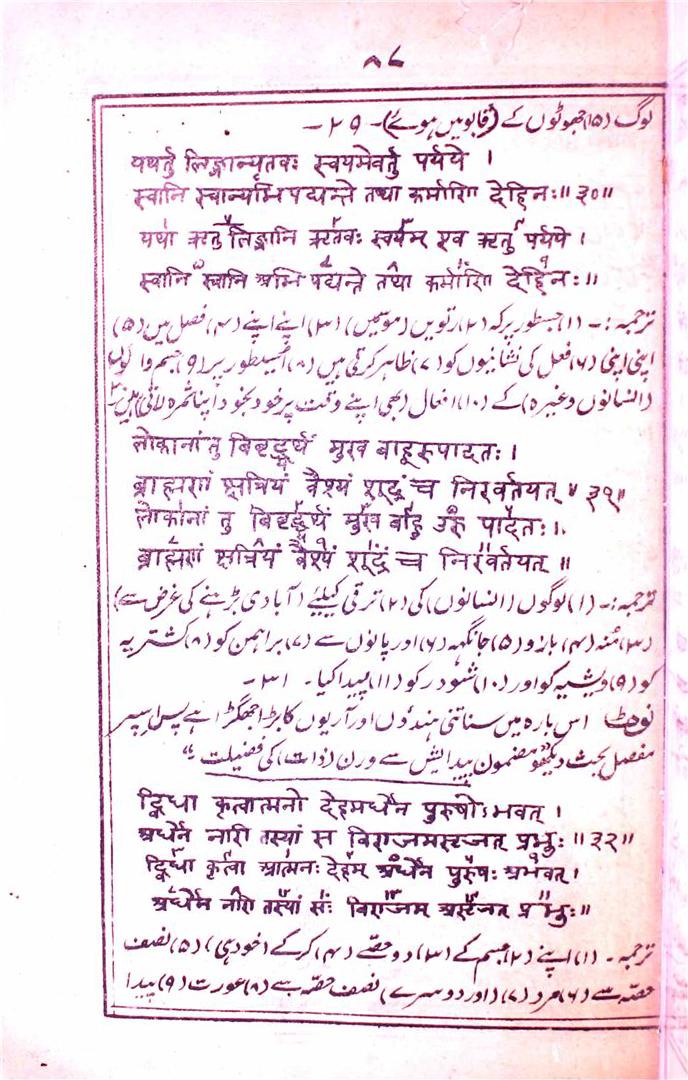 ۸۷
لوگ (۵) جھوٹوں کے (قابو میں ہوئے) - ۲۹ -
यथर्तु लिङ्गान्यृतवः स्वयमेवर्तु पर्यये ।
स्वानि स्वान्यभि पद्यन्ते तथा कर्माणि देहिनः॥ ३०॥
यथा ऋतु लिङ्गानि ऋतवः स्वयम् एव ऋतु पर्यये ।
स्वानि स्वानि अभि पद्यन्ते तथा कर्माणि देहिनः॥
ترجمہ :- (۱) جسطور پر کہ (۲) رتویں (موسمیں) (۳) اپنے اپنے (۴) فصل میں (۵)
اپنی اپنی (۶) فعل کی نشانیوں کو (۷) ظاہر کرتی ہیں (۸) اسیطور پر (۹) جسم والوں
(انسانوں وغیرہ) کے (۱۰) افعال (بھی اپنے وقت پر خود بخود اپنا ثمرہ لاتی) ہیں
लोकानां तु विवृद्ध्यर्थं मुख बाहूरुपादतः ।
ब्राह्मणं क्षत्रियं वैश्यं शूद्रं च निरवर्तयत् ॥ ३१॥
लोकानां तु विवृद्ध्यर्थं मुख बाहु उरु पादतः ।
ब्राह्मणं क्षत्रियं वैश्यं शूद्रं च निरवर्तयत् ॥
ترجمہ :- (۱) لوگوں (انسانوں) کی (۲) ترقی کیلئے (آبادی بڑھنے کی غرض سے)
(۳) مُنہ (۴) بازو (۵) جانگہہ (۶) اور پانوں سے (۷) براہمن کو (۸) کشتریہ
کو (۹) ویشیہ کو اور (۱۰) شودر کو (۱۱) پیدا کیا - ۳۱ -
نوٹ اس بارہ میں سناتنی ہندؤں اور آریوں کا بڑا جھگڑا ہے پس اسپر
مفصل بحث دیکھو مضمون "پیدایش سے ورن (ذات) کی فضیلت"
द्विधा कृत्वात्मनो देहमर्धेन पुरुषोऽभवत् ।
अर्धेन नारी तस्यां स विराजमसृजत् प्रभुः ॥३२॥
द्विधा कृत्वा आत्मनः देहम् अर्धेन पुरुषः अभवत् ।
अर्धेन नारी तस्यां सः विराजम् असृजत् प्रभुः॥
ترجمہ - (۱) اپنے (۲) جسم کے (۳) دو حصّے (۴) کر کے (خود ہی) (۵) نصف
حصّہ سے (۶) مرد (۷) (اور دوسرے) نصف حصّہ سے (۸) عورت (۹) پیدا